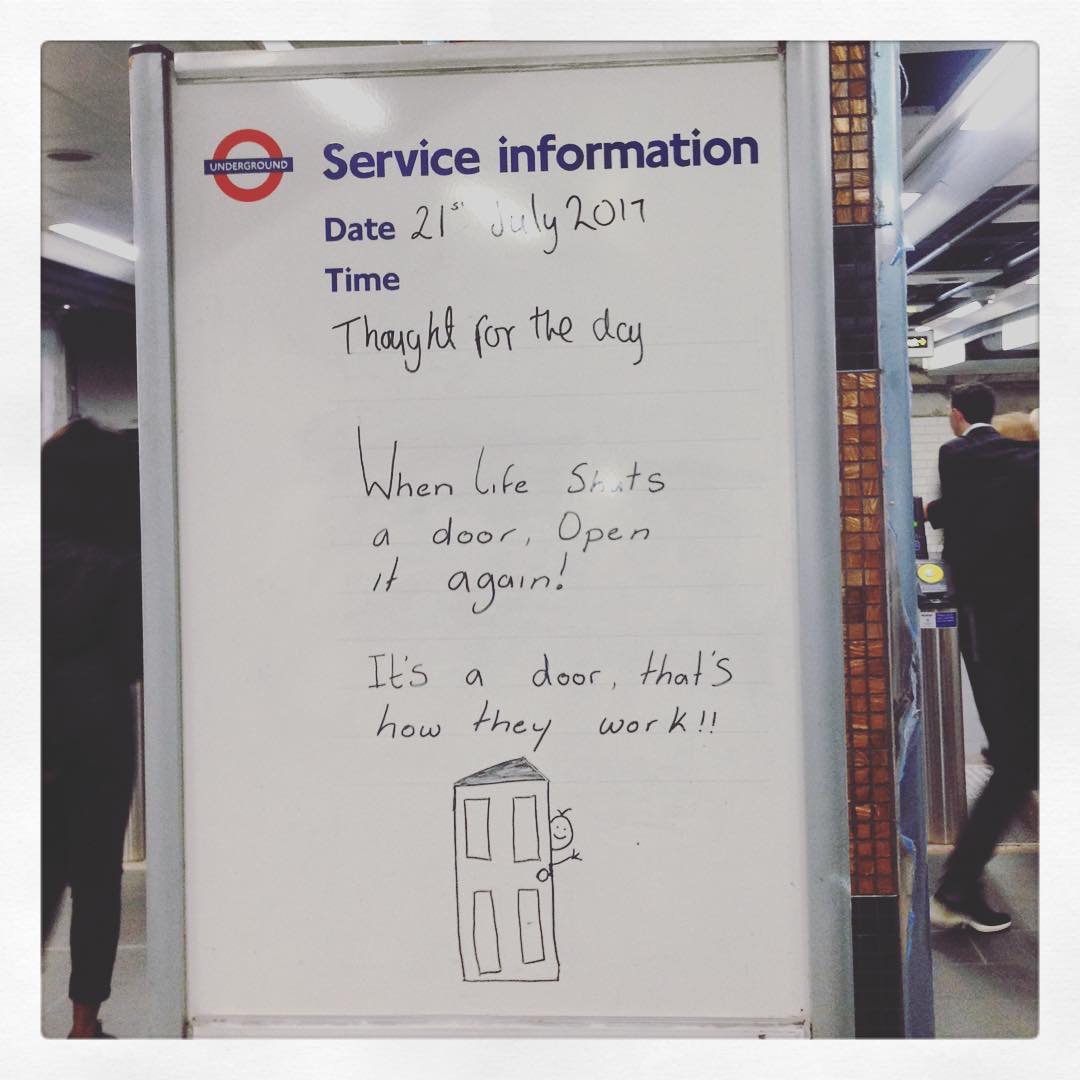 UNDERGROUND
Service information
Date 21st July 2017
Time
Thought for the day
When life Shuts
a door, Open
it again!
It's a door, that's
how they work!!